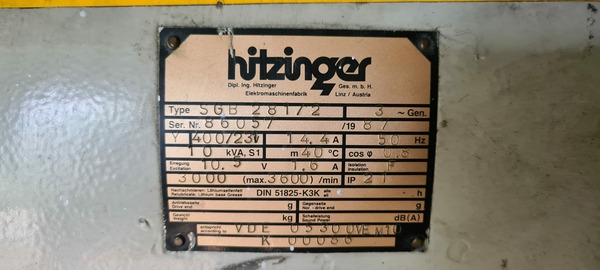 hitzinger
Dipl. Ing. Hitzinger Ges. m. b. H.
Elektromaschinenfabrik Linz / Austria
Type SGB 281/2 3 ~ Gen.
Ser. Nr. 86057 /19 87
Y 400/231 V 14,4 A 50 Hz
10 kVA, S1 m 40 °C cos φ 0,8
Erregung Excitation 10,5 V 1,6 A Isolation insulation F
3000 (max. 3600) /min IP 21
Nachschmieren: Lithiumseifenfett alle
Relubricate: Lithium base Grease DIN 51825-K3K all - h
Antriebsseite Gegenseite
Drive end g Non-drive end g
Gewicht Schalleistung
Weight kg Sound Power dB(A)
entspricht
according to VDE 0530 ÖVE M10
K 00086